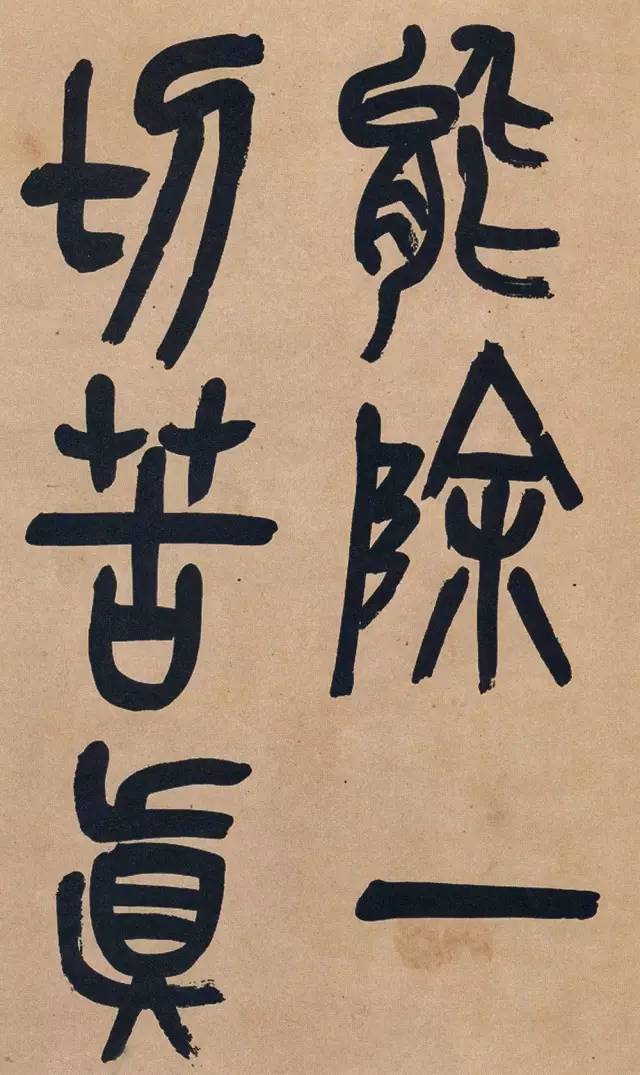 能除一
切苦眞